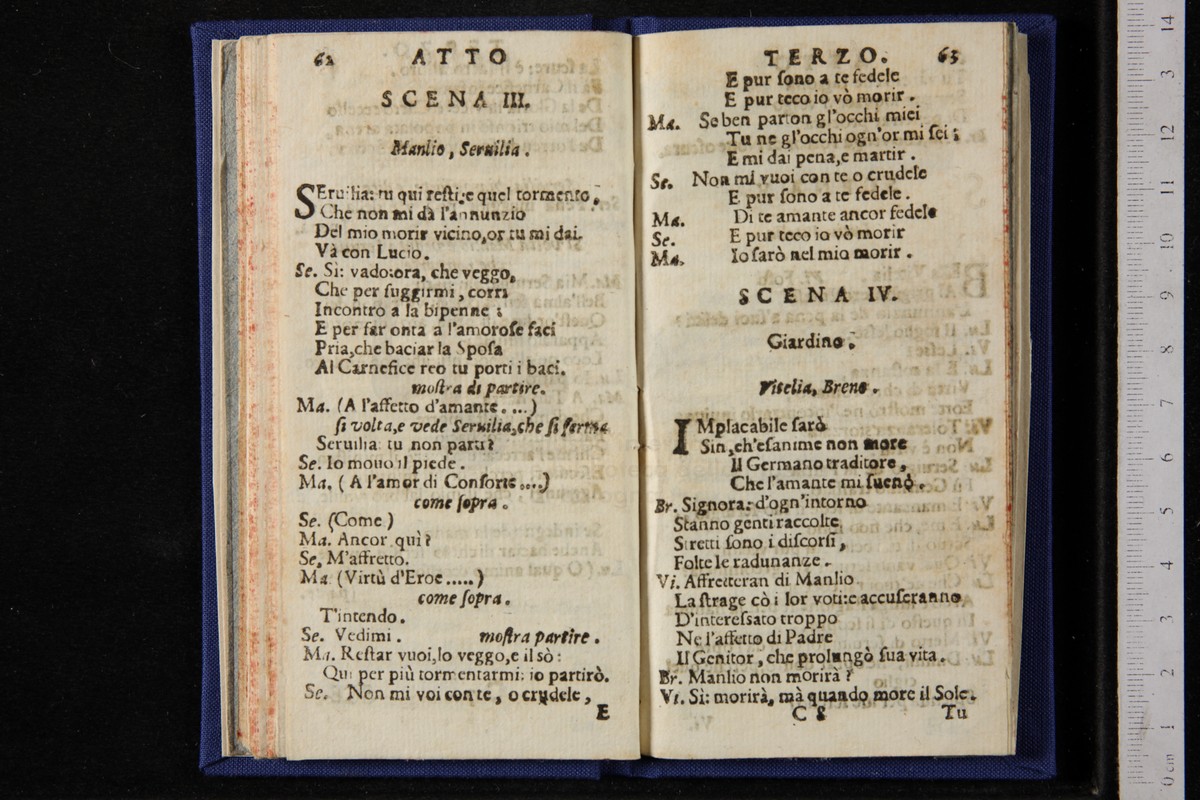 62 ATTO
SCENA III.
Manlio, Seruilia.
SEruilia: tu qui resti, e quel tormento,
Che non mi dà l'annunzio
Del mio morir vicino, or tu mi dai.
Và con Lucio.
Se. Sì: vado: ora, che veggo,
Che per fuggirmi, corri
Incontro a la bipenne;
E per far onta a l'amorose faci
Pria, che baciar la Sposa
Al Carnefice reo tu porti i baci.
mostra di partire.
Ma. (A l'affetto d'amante. ...)
si volta, e vede Seruilia, che si ferma
Seruilia tu non parti?
Se. Io mouo il piede.
Ma. (A l'amor di Consorte ....)
come sopra.
Se. (Come)
Ma. Ancor quì?
Se. M'affretto.
Ma (Virtù d'Eroe .....)
come sopra.
T'intendo.
Se. Vedimi. mostra partire.
Ma. Restar vuoi, lo veggo, e il sò:
Qui per più tormentarmi: io partirò.
Se. Non mi voi con te, o crudele,
E
TERZO. 63
E pur sono a te fedele
E pur teco io vò morir.
Ma. Se ben parton gl'occhi miei
Tu ne gl'occhi ogn'or mi sei;
E mi dai pena, e martir.
Se. Non mi vuoi con te o crudele
E pur sono a te fedele.
Ma. Di te amante ancor fedele
Se. E pur teco io vò morir
Ma. Io sarò nel mio morir.
SCENA IV.
Giardino.
Vitelia, Breno.
IMplacabile sarò
Sin, ch'esanime non more
Il Germano traditore,
Che l'amante mi suenò.
Br. Signora: d'ogn'intorno
Stanno genti raccolte,
Stretti sono i discorsi,
Folte le radunanze.
Vi. Affretteran di Manlio
La strage cò i lor voti: e accuseranno
D'interessato troppo
Ne l'affetto di Padre
Il Genitor, che prolungò sua vita.
Br. Manlio non morirà?
Vi. Sì: morirà, mà quando more il Sole.
C 8 Tu